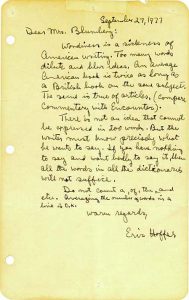 September 27, 1977
Dear Mrs. Blumberg:
Wordiness is a sickness of
American writing. Too many words
dilute and blur ideas. An average
American book is twice as long as
a British book on the same subject.
The same is true of articles, (compare
Commentary with Encounter).
There is not an idea that cannot
be expressed in 200 words. But the
writer must know precisely what
he wants to say. If you have nothing
to say and want badly to say it, then
all the words in all the dictionaries
will not suffice.
Do not count a, of, the, and
etc. Averaging the number words in a
line is O.K.
Warm regards,
Eric Hoffer